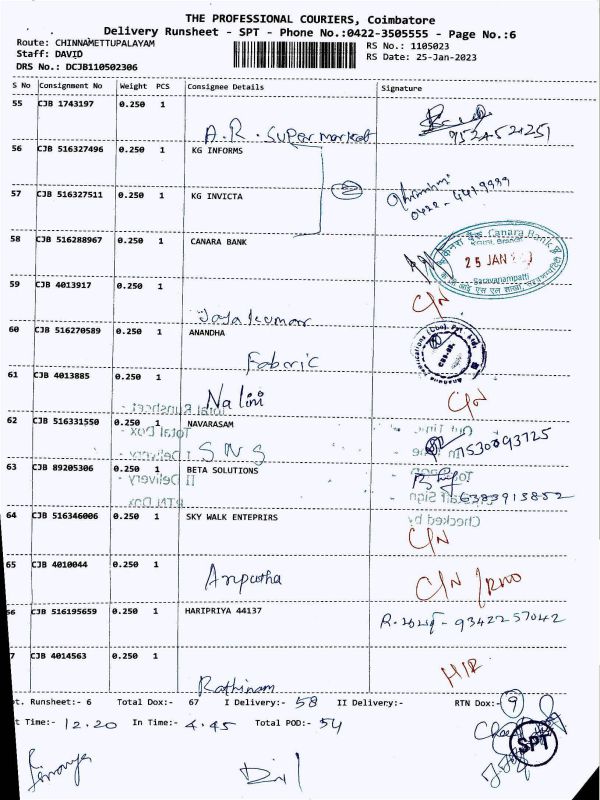 THE PROFESSIONAL COURIERS, Coimbatore
Delivery Runsheet - SPT - Phone No.:0422-3505555 - Page No.:6
Route: CHINNAMETTUPALAYAM
Staff: DAVID
DRS No.: DCJB110502306
RS No.: 1105023
RS Date: 25-Jan-2023
S No Consignment No Weight PCS Consignee Details Signature
55 CJB 1743197 0.250 1
A.R. Supermarket
9534521251
56 CJB 516327496 0.250 1 KG INFORMS
57 CJB 516327511 0.250 1 KG INVICTA
0422-4419999
58 CJB 516288967 0.250 1 CANARA BANK
Canara Bank
25 JAN
Saravanampatti
59 CJB 4013917 0.250 1
Jayakumar
C/N
60 CJB 516270589 0.250 1 ANANDHA
Fabric
61 CJB 4013885 0.250 1
Nalini
C/N
62 CJB 516331550 0.250 1 NAVARASAM
SNS
7530093725
63 CJB 89205306 0.250 1 BETA SOLUTIONS
6383913852
64 CJB 516346006 0.250 1 SKY WALK ENTEPRIRS
C/N
65 CJB 4010044 0.250 1
C/N / RNO
66 CJB 516195659 0.250 1 HARIPRIYA 44137
9342257042
7 CJB 4014563 0.250 1
Rathinam
H/R
t. Runsheet:- 6 Total Dox:- 67 I Delivery:- 58 II Delivery:- RTN Dox:- 9
t Time:- 12.20 In Time:- 4.45 Total POD:- 54
SPT